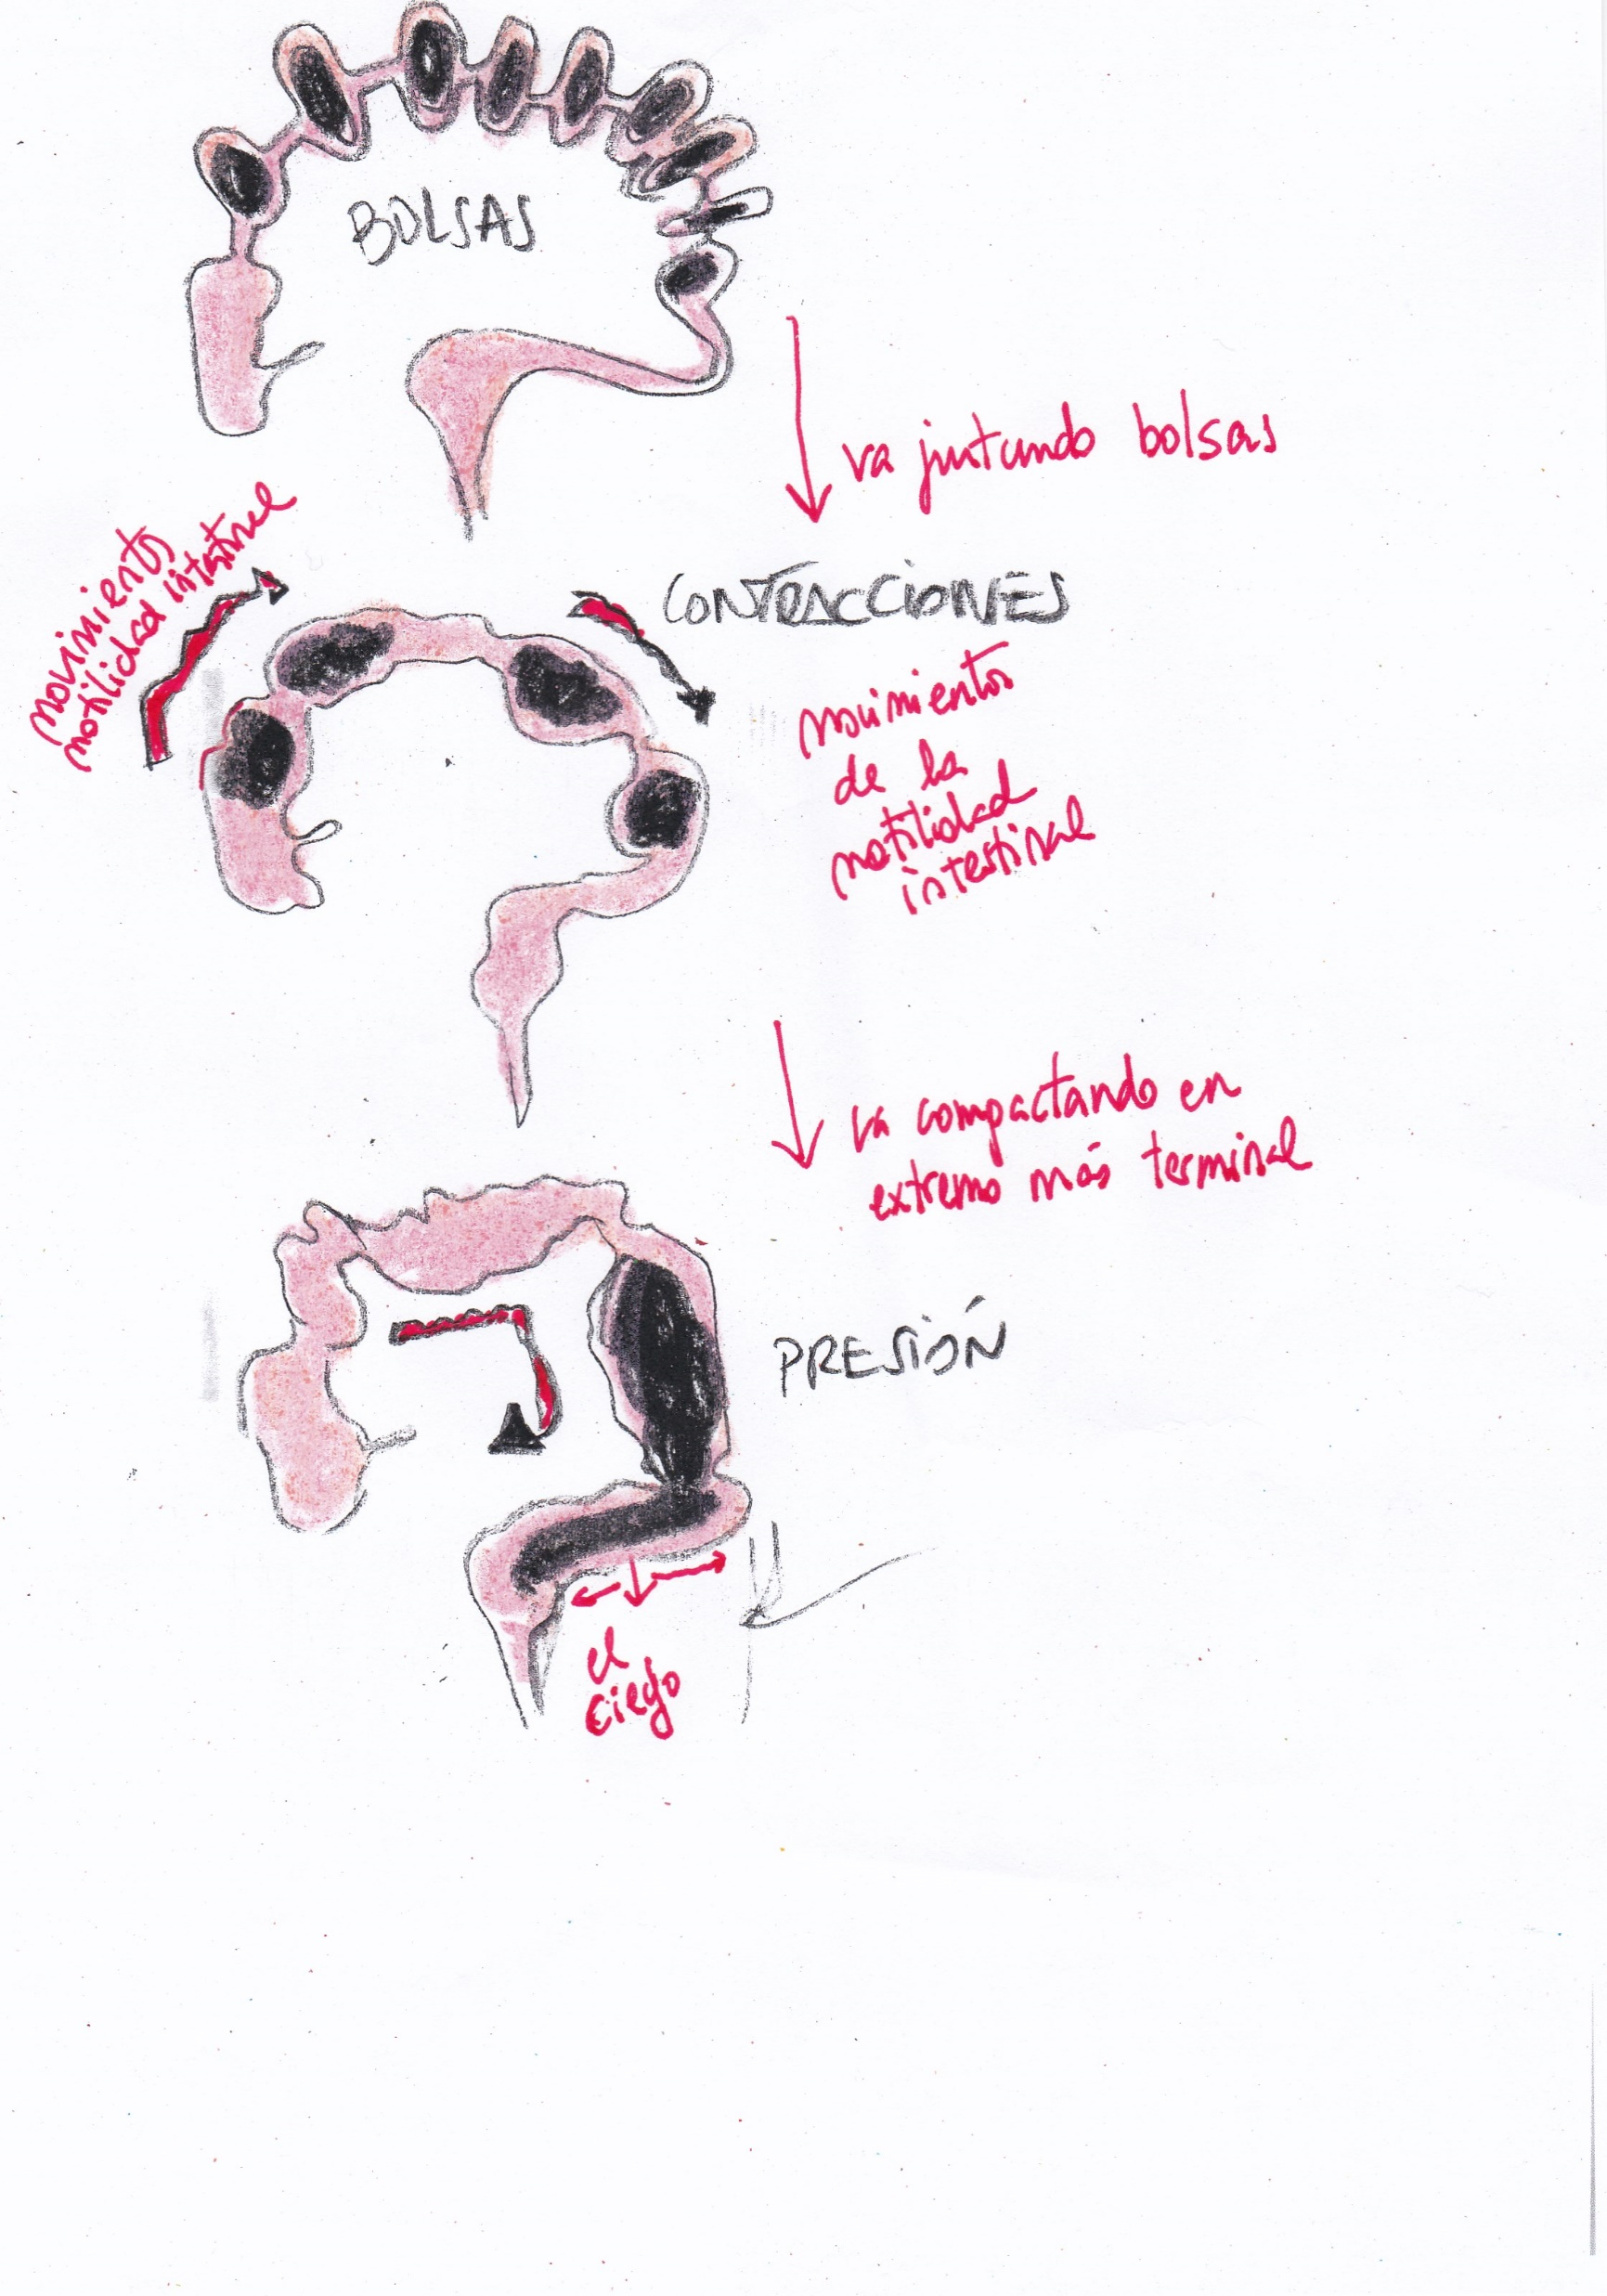 BOLSAS
va juntando bolsas
movimientos
motilidad intestinal
CONTRACCIONES
movimientos
de la
motilidad
intestinal
va compactando en
extremo más terminal
PRESIÓN
el
ciego